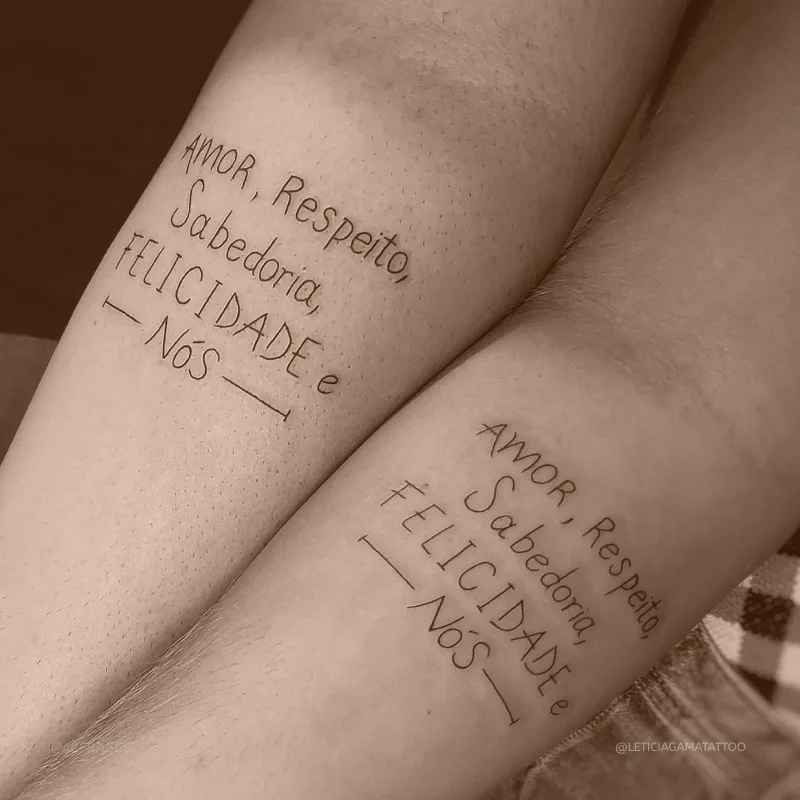 AMOR, Respeito,
Sabedoria,
FELICIDADE e
NÓS
AMOR, Respeito,
Sabedoria,
FELICIDADE e
NÓS
@LETICIAGAMATATTOO